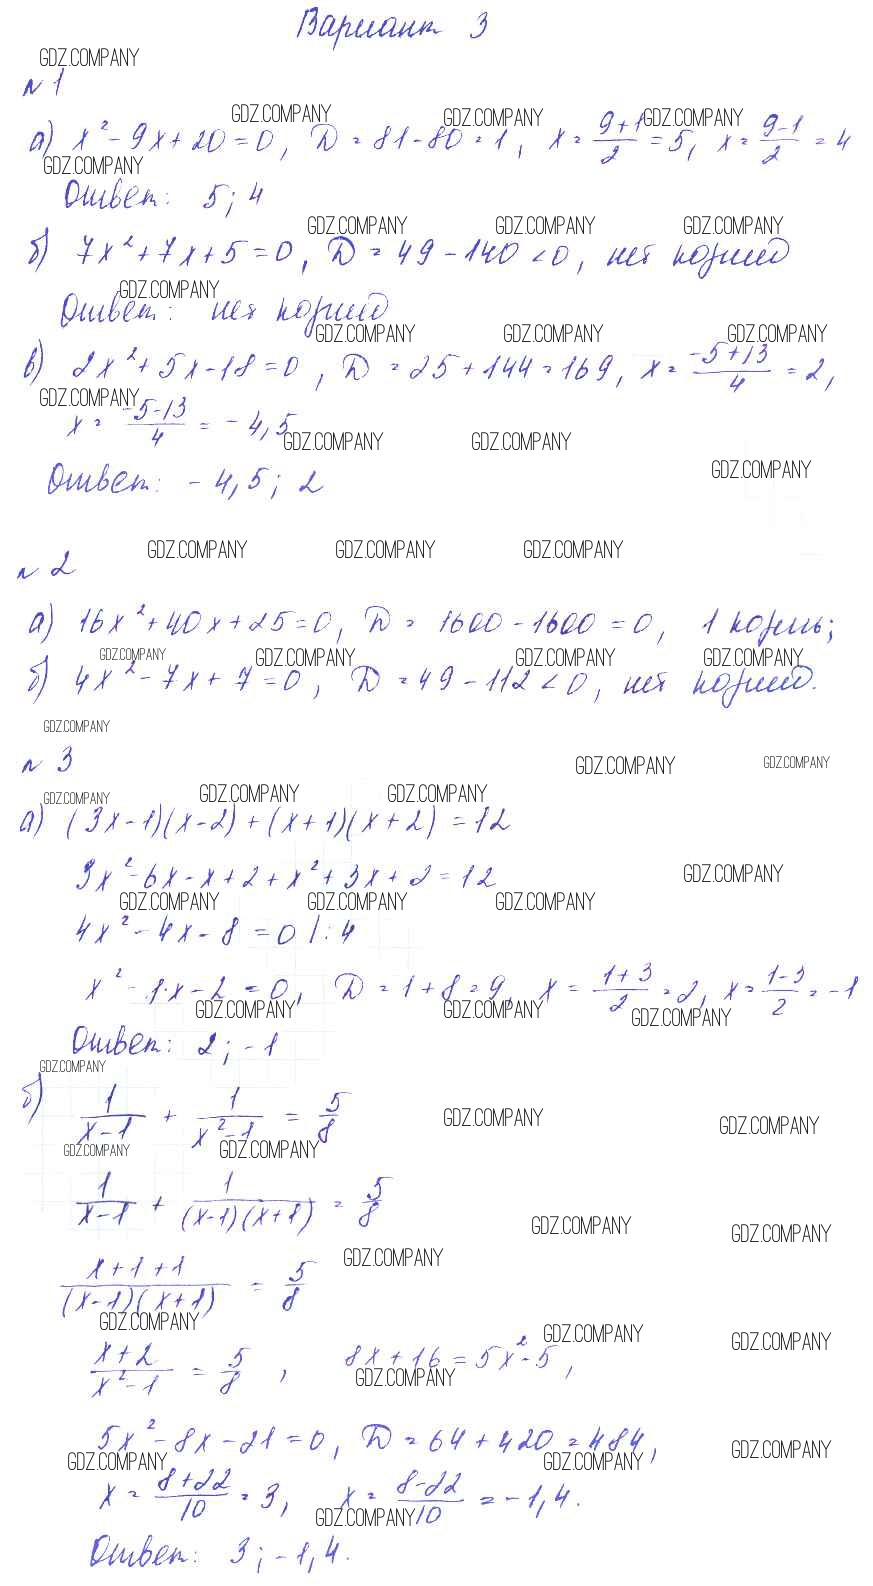 Вариант 3
GDZ.COMPANY
№ 1
GDZ.COMPANY GDZ.COMPANY GDZ.COMPANY
а) x² - 9x + 20 = 0, D = 81 - 80 = 1, x = (9+1)/2 = 5, x = (9-1)/2 = 4
GDZ.COMPANY
Ответ: 5; 4
GDZ.COMPANY GDZ.COMPANY GDZ.COMPANY
б) 7x² + 7x + 5 = 0, D = 49 - 140 < 0, нет корней
GDZ.COMPANY
Ответ: нет корней
GDZ.COMPANY GDZ.COMPANY GDZ.COMPANY
в) 2x² + 5x - 18 = 0, D = 25 + 144 = 169, x = (-5+13)/4 = 2,
GDZ.COMPANY
x = (-5-13)/4 = -4,5
GDZ.COMPANY GDZ.COMPANY GDZ.COMPANY
Ответ: -4,5; 2
GDZ.COMPANY GDZ.COMPANY GDZ.COMPANY
№ 2
а) 16x² + 40x + 25 = 0, D = 1600 - 1600 = 0, 1 корень;
GDZ.COMPANY GDZ.COMPANY GDZ.COMPANY GDZ.COMPANY
б) 4x² - 7x + 7 = 0, D = 49 - 112 < 0, нет корней.
GDZ.COMPANY
№ 3
GDZ.COMPANY GDZ.COMPANY
GDZ.COMPANY GDZ.COMPANY GDZ.COMPANY
а) (3x-1)(x-2) + (x+1)(x+2) = 12
3x² - 6x - x + 2 + x² + 3x + 2 = 12
GDZ.COMPANY
GDZ.COMPANY GDZ.COMPANY GDZ.COMPANY
4x² - 4x - 8 = 0 |:4
x² - 1·x - 2 = 0, D = 1 + 8 = 9, x = (1+3)/2 = 2, x = (1-3)/2 = -1
GDZ.COMPANY GDZ.COMPANY GDZ.COMPANY
Ответ: 2; -1
GDZ.COMPANY
б) 1/(x-1) + 1/(x²-1) = 5/8
GDZ.COMPANY GDZ.COMPANY
GDZ.COMPANY GDZ.COMPANY
1/(x-1) + 1/((x-1)(x+1)) = 5/8
GDZ.COMPANY GDZ.COMPANY
(x+1+1)/((x-1)(x+1)) = 5/8
GDZ.COMPANY
GDZ.COMPANY GDZ.COMPANY GDZ.COMPANY
(x+2)/(x²-1) = 5/8, 8x + 16 = 5x² - 5,
GDZ.COMPANY
5x² - 8x - 21 = 0, D = 64 + 420 = 484,
GDZ.COMPANY GDZ.COMPANY GDZ.COMPANY
x = (8+22)/10 = 3, x = (8-22)/10 = -1,4.
GDZ.COMPANY
Ответ: 3; -1,4.